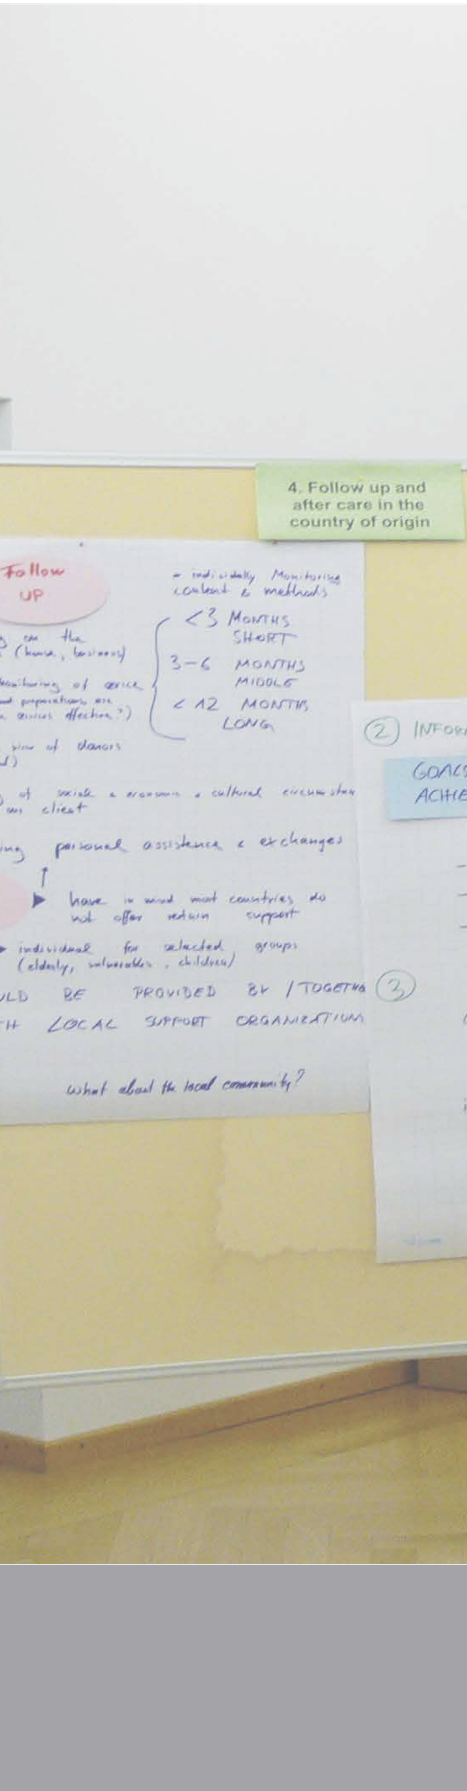 4. Follow up and
after care in the
country of origin
Follow
UP
- individally Monitoring
content & methods
<3 MONTHS
SHORT
3-6 MONTHS
MIDDLE
< 12 MONTHS
LONG
on the
(house, business)
monitoring of service
and preparations are
services effective?)
view of donors
of sociale & economic & cultural
client
personal assistence & exchanges
have in mind most countries do
not offer return support
individual for selected groups
(elderly, vulnerables, children)
BE PROVIDED BY / TOGETHE
LOCAL SUPPORT ORGANIZATION
what about the local community?
2 INFOR
GOALS
ACHIE
3